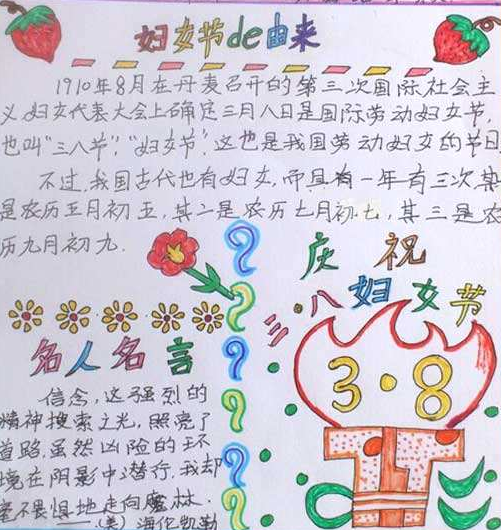 妇女节de由来
1910年8月在丹麦召开的第三次国际社会主
义妇女代表大会上确定三月八日是国际劳动妇女节,
也叫"三八节","妇女节",这也是我国劳动妇女的节日
不过,我国古代也有妇女,而且有一年有三次,其
是农历五月初五,其二是农历七月初七,其三是农
历九月初九.
庆祝
三·八妇女节
3·8
名人名言
信念,这强烈的
精神搜索之光,照亮了
道路,虽然凶险的环
境在阴影中潜行,我却
毫不畏惧地走向魔林.
——(美)海伦凯勒